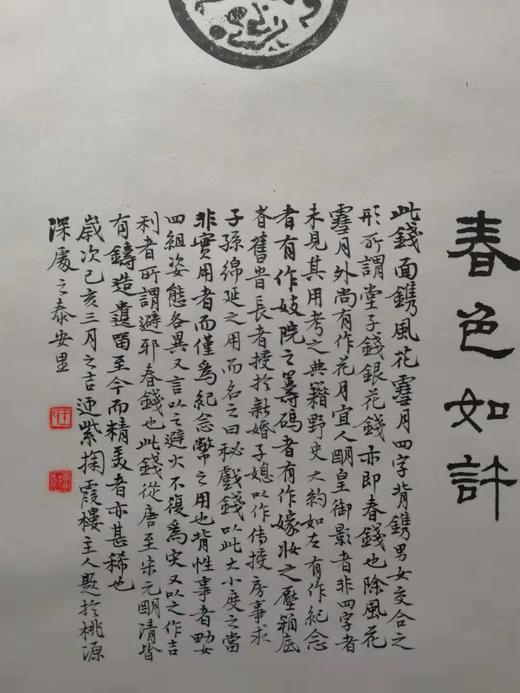 春色如許
此錢面鐫風花雪月四字背鐫男女交合之
形所謂堂子錢銀花錢亦即春錢也除風花
雪月外尚有作花月宜人明皇御影者非四字者
未見其用考之典籍野史大約如左有作紀念
者有作妓院之籌碼者有作嫁妝之壓箱底
者舊昔長者授於新婚子媳以作傳授房事求
子孫綿延之用而名之曰秘戲錢以此大小度之當
非實用者而僅爲紀念幣之用也背性事者男女
四組姿態各異又言以之避火不複爲災又以之作吉
利者所謂避邪春錢也此錢從唐至宋元明清皆
有鑄造遺留至今而精美者亦甚稀也
歲次己亥三月之吉迎紫掬霞樓主人題於桃源
深處之泰安里